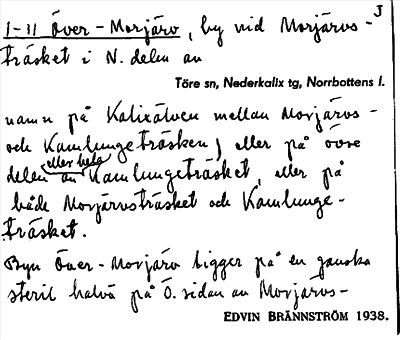 J
1-11 Över-Morjärv, by vid Morjärvs-
träsket i N. delen av
Töre sn, Nederkalix tg, Norrbottens l.
namn på Kalixälven mellan Morjärvs-
och Kamlungeträsken, eller på övre
eller hela
delen av Kamlungeträsket, eller på
både Morjärvsträsket och Kamlunge-
träsket.
Byn Över-Morjärv ligger på en ganska
steril halvö på Ö. sidan av Morjärvs-
EDVIN BRÄNNSTRÖM 1938.